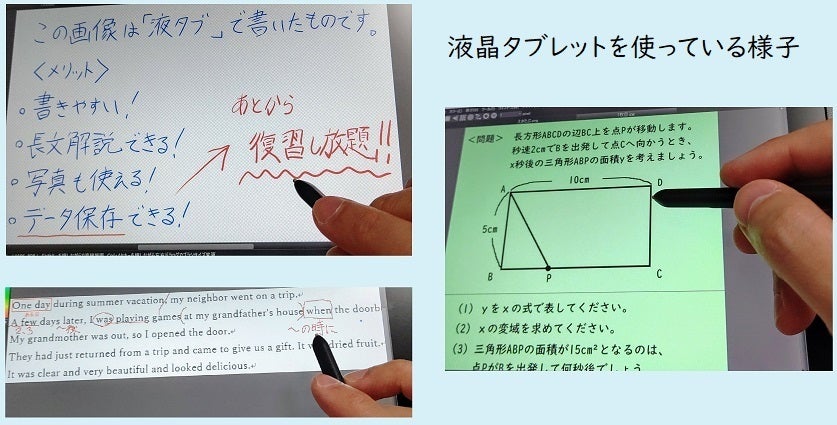 この画像は「液タブ」で書いたものです。
<メリット>
。書きやすい!
。長文解説できる!
。写真も使える!
。データ保存できる!
あとから
復習し放題!!
液晶タブレットを使っている様子
<問題> 長方形ABCDの辺BC上を点Pが移動します。
秒速2cmでBを出発して点Cへ向かうとき、
x秒後の三角形ABPの面積yを考えましょう。
10cm
A
D
5cm
B
P
C
(1) yをxの式で表してください。
(2) xの変域を求めてください。
(3) 三角形ABPの面積が15cm²となるのは、
点PがBを出発して何秒後でしょう
One day during summer vacation, my neighbor went on a trip.
A few days later, I was playing games at my grandfather's house when the doorb
2,3
~の時に
My grandmother was out, so I opened the door.
They had just returned from a trip and came to give us a gift. It dried fruit.
It was clear and very beautiful and looked delicious.